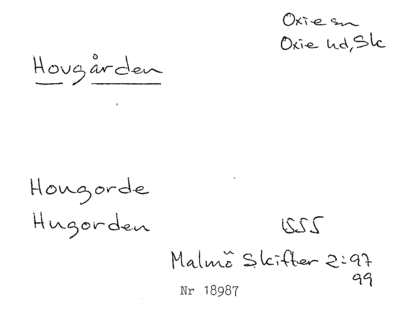 Oxie sn
Oxie hd, Sk
Hovgården
Hougorde
Hugorden 1555
Malmö Skifter 2:97
99
Nr 18987